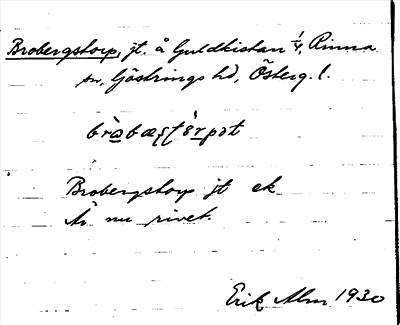 Brobergstorp, jt. å Guldkistan 1/4, Rinna
sn, Göstrings hd, Österg. l.
Brobergstorp jt ek
Är nu rivet.
Erik Alm 1930